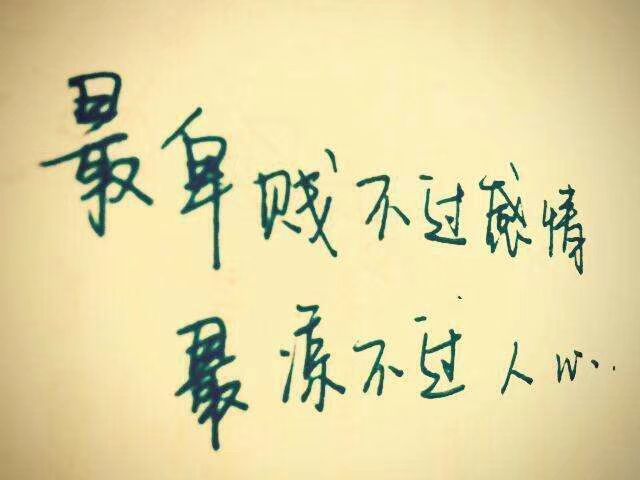 最卑贱不过感情
最凉不过人心